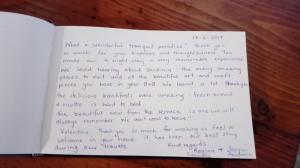 17-6-2017
What a wonderful tranquil paradise! Thank you
so much for your kindness and thoughtfulness. You
made our 4 night stay a very memorable experience
We loved hearing about the many amazing
places to visit and all the beautiful art and craft
pieces you have in your B+B. We learnt a lot
the delicious breakfasts were amazing - fresh
is hard to beat
The beautiful view from the terrace, is one we will
always remember. We don't want to leave!
Valentina, thank you so much for making us feel so
welcome in your home. It has been our best stay
during our travels.
Kind regards
Regina &